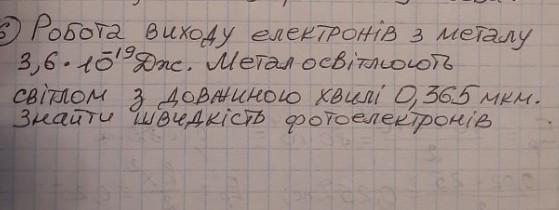 6) Робота виходу електронів з металу
3,6 · 10⁻¹⁹ Дж. Метал освітлюють
світлом з довжиною хвилі 0,365 мкм.
Знайти швидкість фотоелектронів